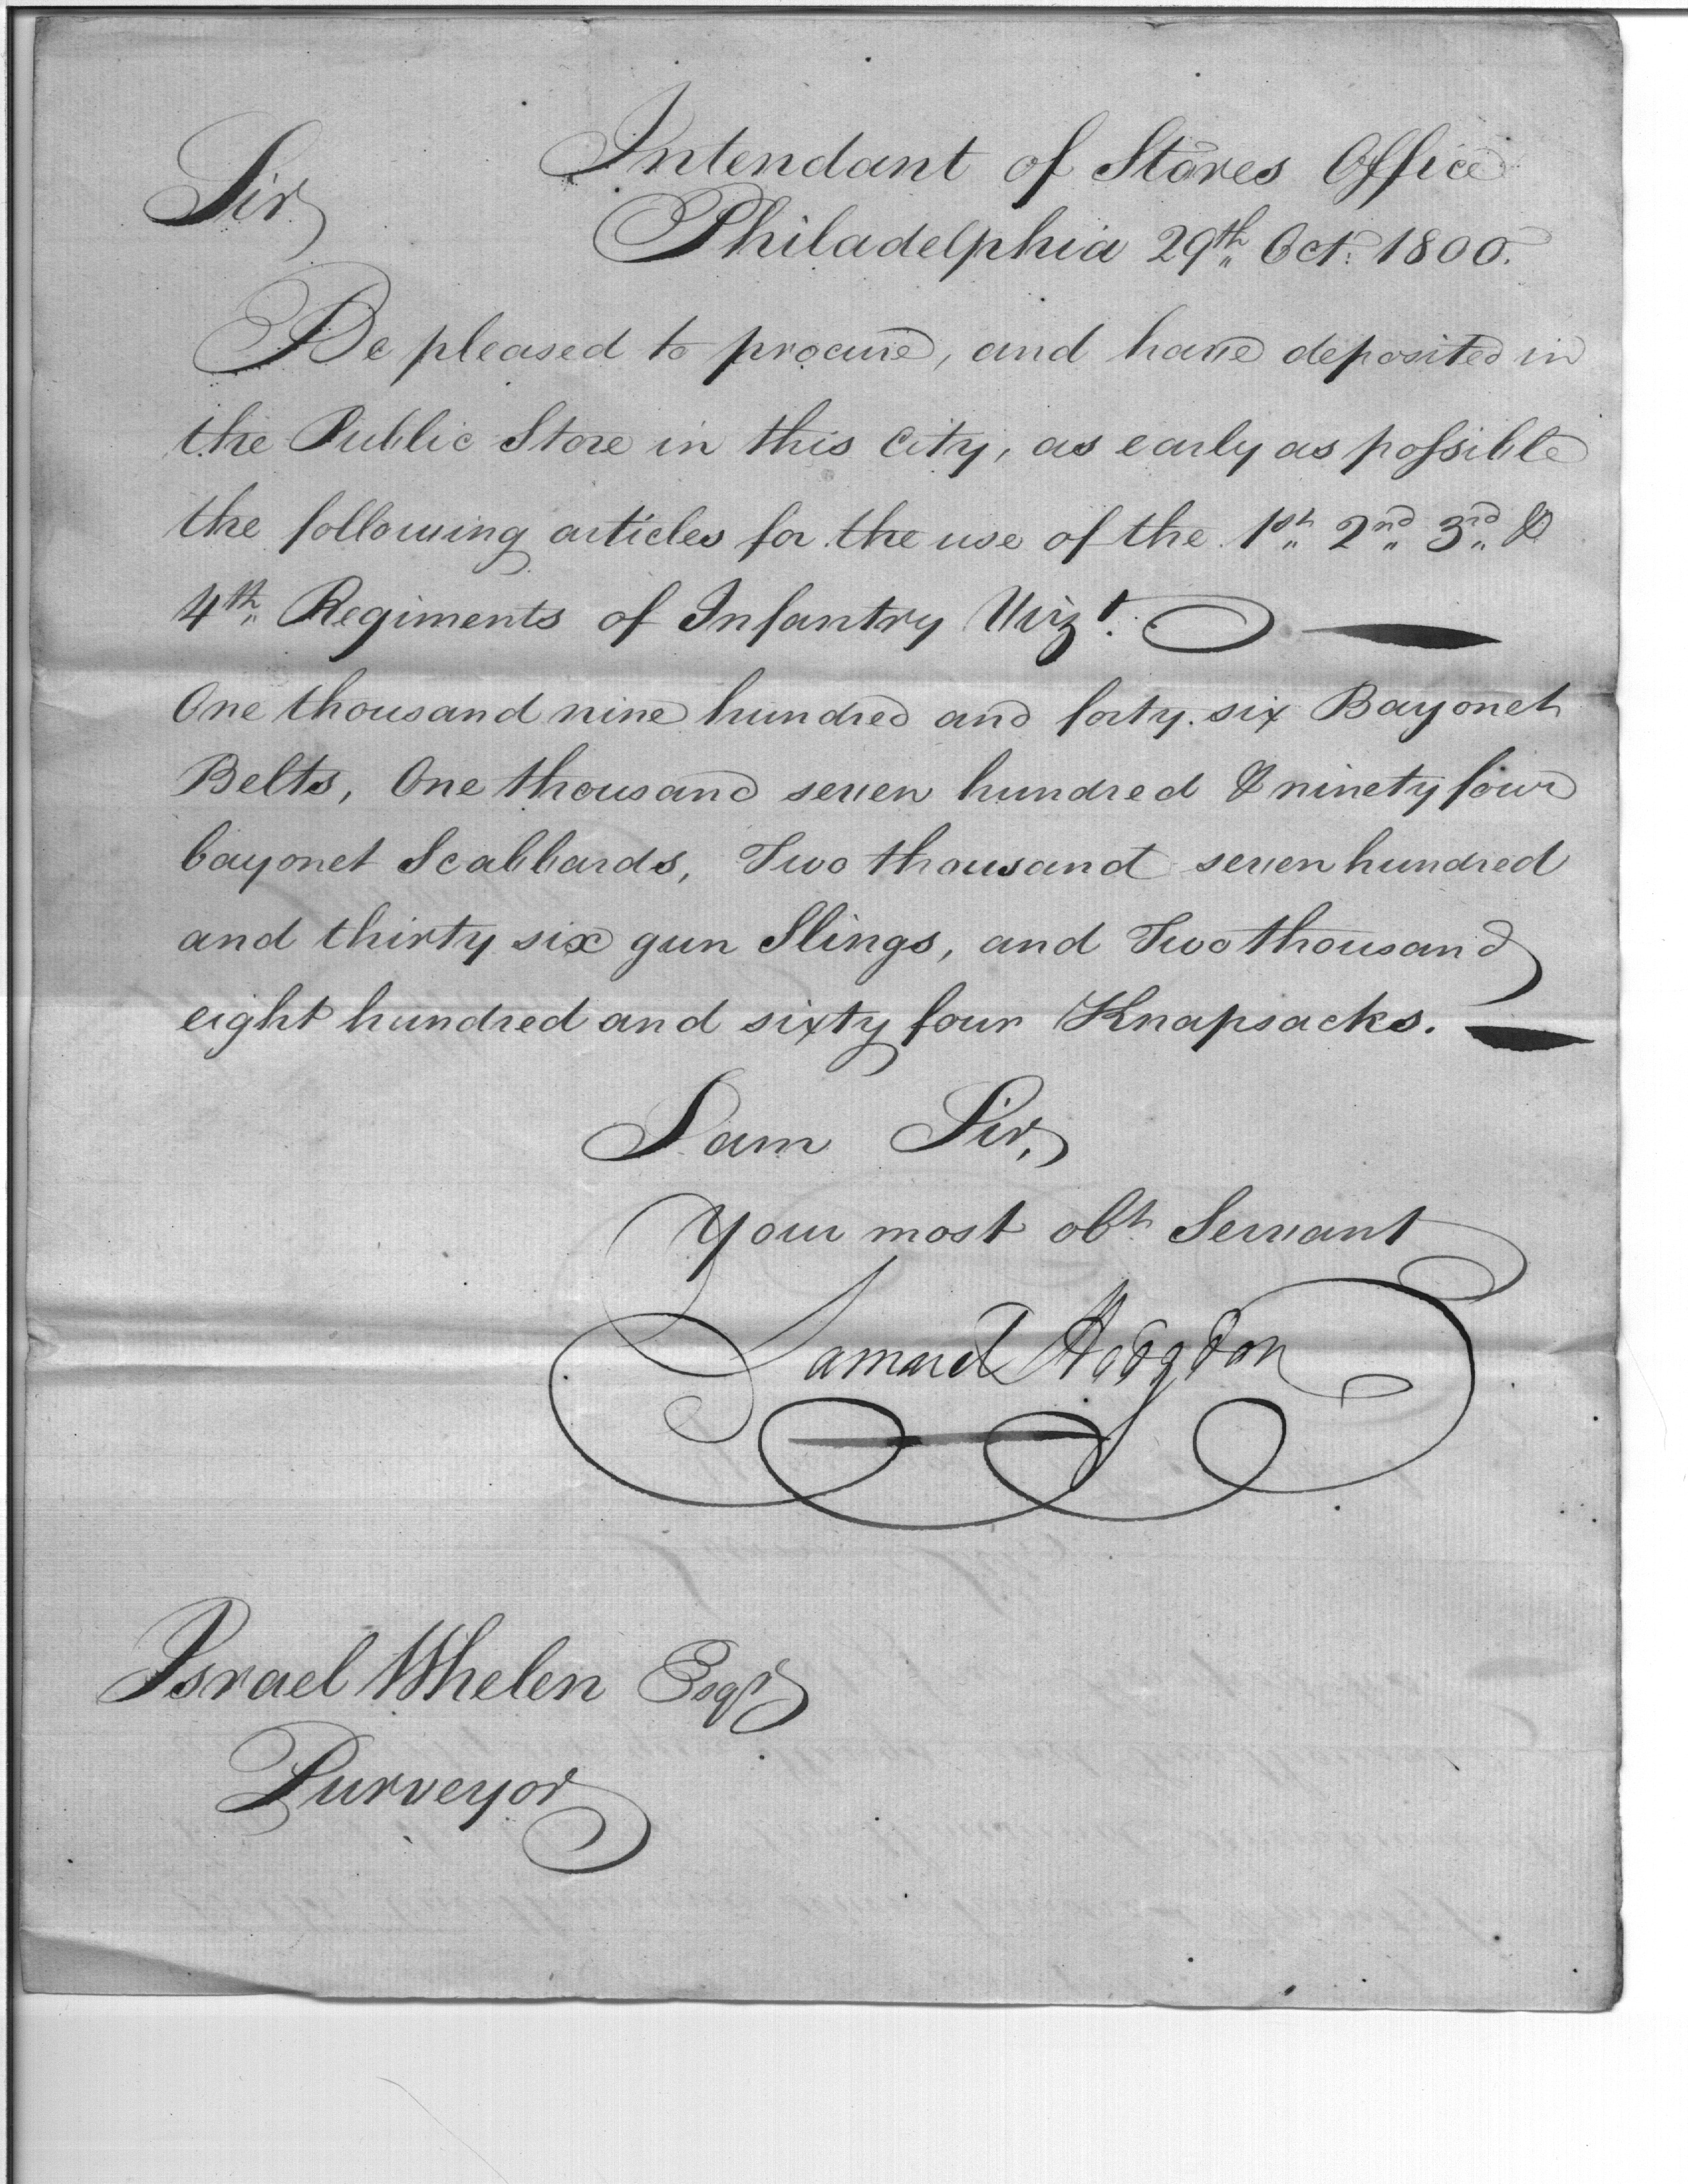 Intendant of Stores Office
Sir
Philadelphia 29th Oct. 1800.
Be pleased to procure, and have deposited in
the Public Store in this City, as early as possible
the following articles for the use of the 1st 2nd 3rd &
4th Regiments of Infantry Vizt.
One thousand nine hundred and forty six Bayonet
Belts, One thousand seven hundred & ninety four
bayonet Scabbards, Two thousand seven hundred
and thirty six gun Slings, and Two thousand
eight hundred and sixty four Knapsacks.
I am Sir,
Your most obt Servant
Samuel Hodgdon
Israel Whelen Esqr
Purveyor